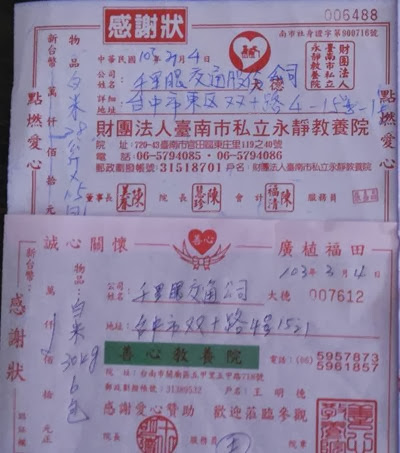 感謝狀
006488
南市社身證字第900716號
中華民國 103年 3月 4日
財團法人
臺南市私立
永靜教養院
新台幣 萬仟佰拾元
物品：白米
點燃愛心
點燃愛心
公司
姓名：千里眼交通股份公司 大德
詳細
地址：台中市東区双十路
財團法人臺南市私立永靜教養院
院 址：720-43臺南市官田區東庄里119之40號
電 話：06-5794085・06-5794086
郵政劃撥帳號：31518701 戶名：財團法人臺南市私立永靜教養院
董事長 院長 會計 服務員
誠心關懷
善心
廣植福田
103年 3月 4日
公司
姓名：千里眼交通公司 大德 007612
地址：台中市双十路
善心教養院
電話：(06) 5957873
5961857
院 址：台南市關廟區五甲里五甲路718號
郵政劃撥帳號：31389532 戶名：王明德
感謝愛心贊助 歡迎蒞臨參觀
院長 服務員 院章
新台幣 萬仟佰拾元正
物品：白米 30kg 6包
感謝狀